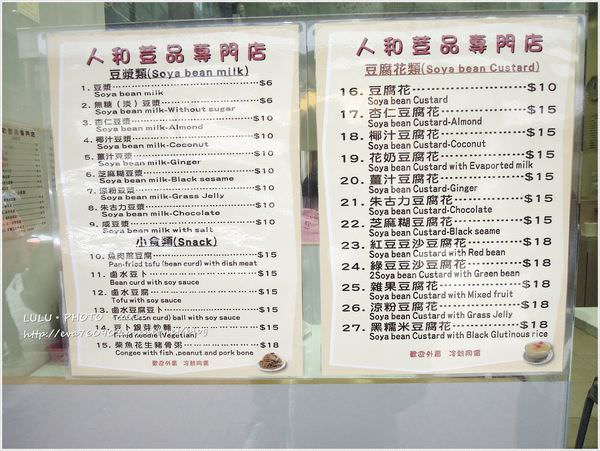 人和荳品專門店
豆漿類(Soya bean milk)
1. 豆漿 $6
Soya bean milk
2. 無糖（淡）豆漿 $6
Soya bean milk-Without sugar
3. 杏仁豆漿 $10
Soya bean milk-Almond
4. 椰汁豆漿 $10
Soya bean milk-Coconut
5. 薑汁豆漿 $10
Soya bean milk-Ginger
6. 芝麻糊豆漿 $10
Soya bean milk-Black sesame
7. 涼粉豆漿 $10
Soya bean milk-Grass Jelly
8. 朱古力豆漿 $10
Soya bean milk-Chocolate
9. 咸豆漿 $10
Soya bean milk with salt
小食類(Snack)
10. 魚肉煎豆腐 $15
Pan-fried tofu (bean curd) with dish meat
11. 鹵水豆卜 $15
Bean curd with soy sauce
12. 鹵水豆腐 $15
Tofu with soy sauce
13. 鹵水豆腐豆卜 $15
Tofu(Bean curd) ball with soy sauce
14. 豆卜銀芽炒麵 $15
Fried noodle (Vegetian)
15. 柴魚花生豬骨粥 $18
Congee with fish ,peanut and pork bone
歡迎外賣 冷熱同價
人和荳品專門店
豆腐花類(Soya bean Custard)
16. 豆腐花 $10
Soya bean Custard
17. 杏仁豆腐花 $15
Soya bean Custard-Almond
18. 椰汁豆腐花 $15
Soya bean Custard-Coconut
19. 花奶豆腐花 $15
Soya bean Custard with Evaported milk
20. 薑汁豆腐花 $15
Soya bean Custard-Ginger
21. 朱古力豆腐花 $15
Soya bean Custard-Chocolate
22. 芝麻糊豆腐花 $15
Soya bean Custard-Black sesame
23. 紅豆豆沙豆腐花 $18
Soya bean Custard with Red bean
24. 綠豆豆沙豆腐花 $18
2Soya bean Custard with Green bean
25. 雜果豆腐花 $18
Soya bean Custard with Mixed fruit
26. 涼粉豆腐花 $18
Soya bean Custard with Grass Jelly
27. 黑糯米豆腐花 $18
Soya bean Custard with Black Glutinous rice
歡迎外賣 冷熱同價
LULU · PHOTO